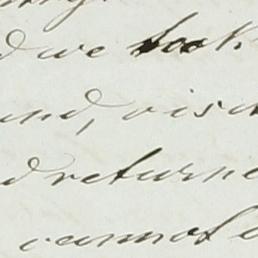 d we took
and, visi
d returne
cannot